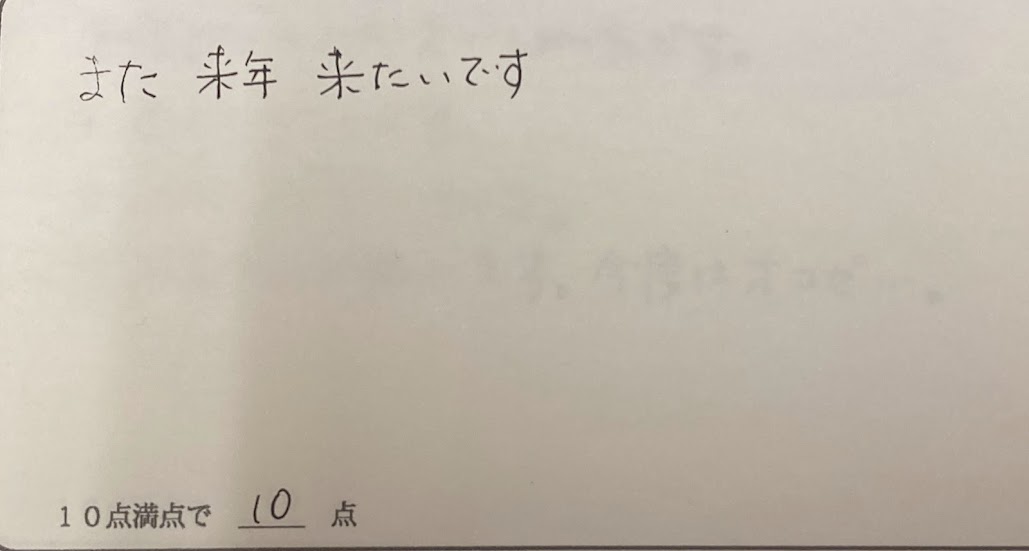 また 来年 来たいです
10点満点で 10 点